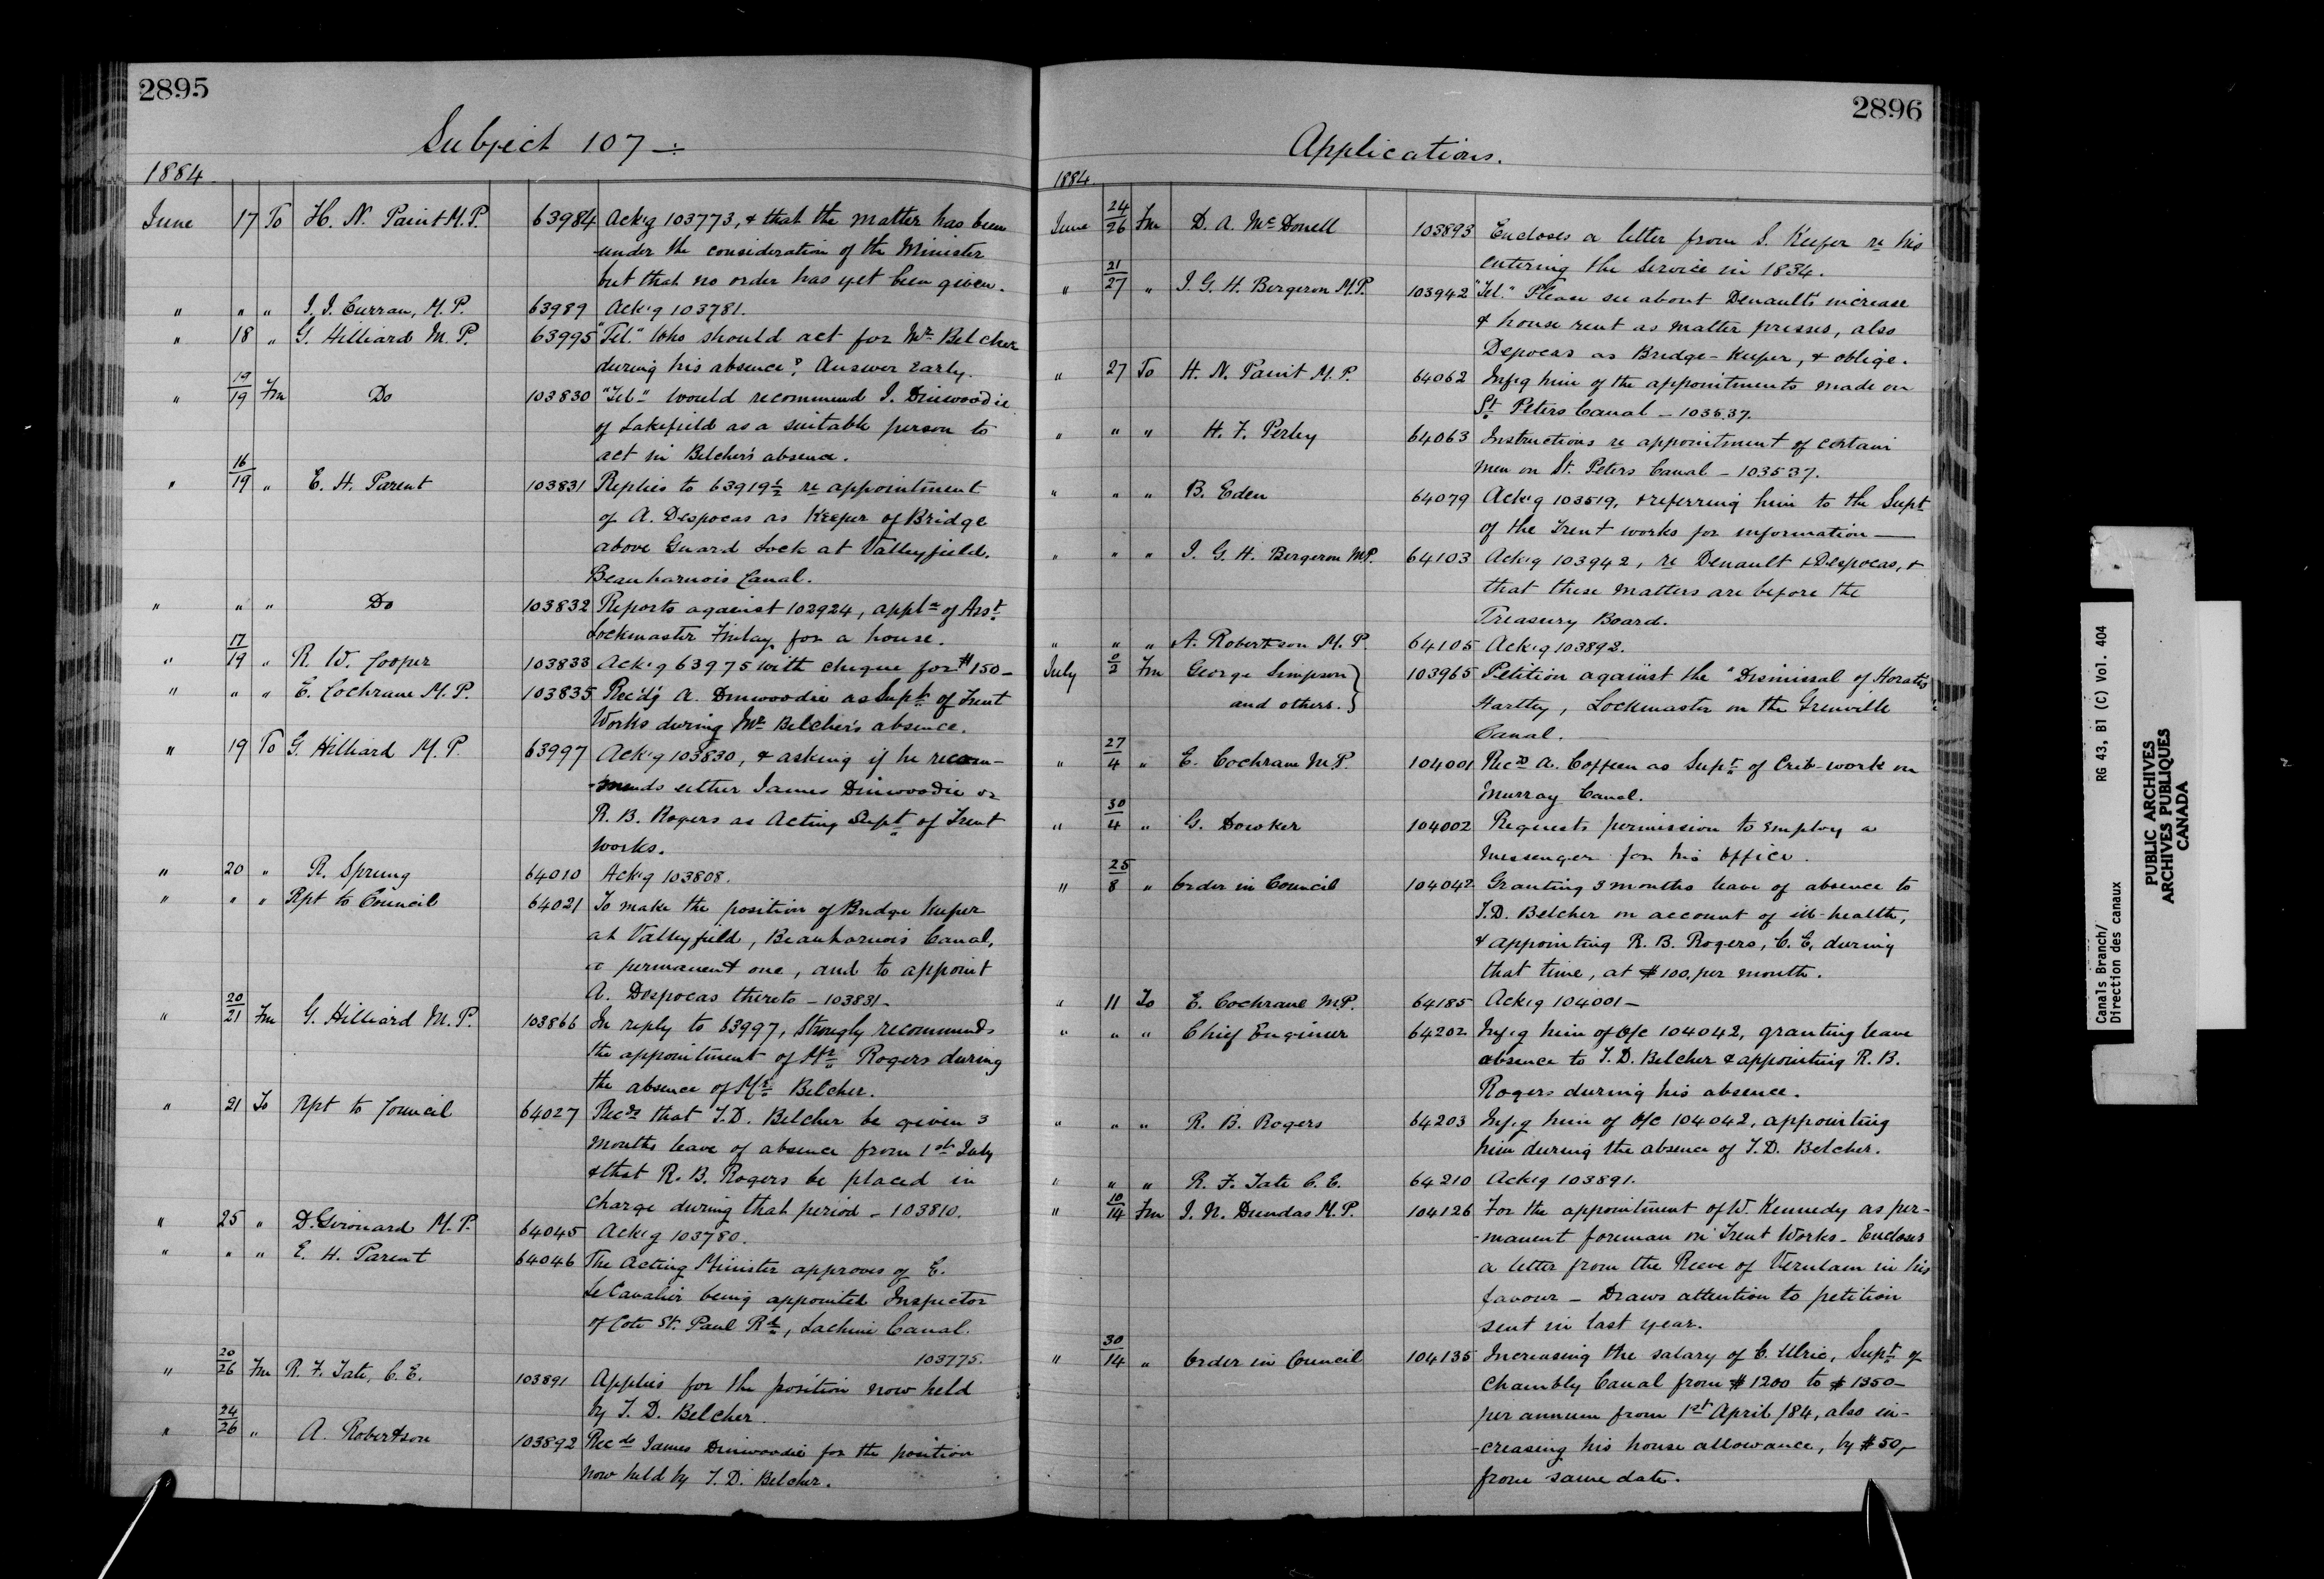 2895
Subject 107 —
1884
June 17 To H. N. Paint M.P. 63984 Ack'g 103773, & that the matter has been
under the consideration of the Minister
but that no order has yet been given.
" " " J. J. Curran, M.P. 63989 Ack'g 103781.
" 18 " G. Hilliard M.P. 63995 "Tel." Who should act for Mr Belcher
during his absence? Answer early.
" 19/19 Fm Do 103830 "Tel" Would recommend J. Dinwoodie
of Lakefield as a suitable person to
act in Belcher's absence.
" 16/19 " E. H. Parent 103831 Replies to 63919½ re appointment
of A. Despocas as Keeper of Bridge
above Guard Lock at Valleyfield,
Beauharnois Canal.
" " " Do 103832 Reports against 102924, appln of Asst
Lockmaster Finlay for a house.
" 17/19 " R. W. Cooper 103833 Ack'g 63975 with cheque for $150—
" " " E. Cochrane M.P. 103835 Rec'd'g A. Dinwoodie as Supt of Trent
Works during Mr Belcher's absence.
" 19 To G. Hilliard M.P. 63997 Ack'g 103830, & asking if he recom-
-mends either James Dinwoodie or
R. B. Rogers as Acting Supt of Trent
works.
" 20 " R. Sprung 64010 Ack'g 103808.
" " " Rpt to Council 64021 To make the position of Bridge Keeper
at Valleyfield, Beauharnois Canal,
a permanent one, and to appoint
A. Despocas thereto — 103831 —
" 20/21 Fm G. Hilliard M.P. 103866 In reply to 63997, strongly recommends
the appointment of Mr Rogers during
the absence of Mr Belcher.
" 21 To Rpt to Council 64027 Recds that T.D. Belcher be given 3
months leave of absence from 1st July
& that R. B. Rogers be placed in
charge during that period — 103810.
" 25 " D. Girouard M.P. 64045 Ack'g 103780.
" " " E. H. Parent 64046 The Acting Minister approves of E.
LeCavalier being appointed Inspector
of Cote St. Paul Rd, Lachine Canal.
103775.
" 20/26 Fm R. F. Tate, C.E. 103891 Applies for the position now held
by T. D. Belcher.
" 24/26 " A. Robertson 103892 Recds James Dinwoodie for the position
now held by T. D. Belcher.
2896
Applications.
1884.
June 24/26 Fm D. A. McDonell 103893 Encloses a letter from S. Keefer re his
entering the Service in 1834.
" 21/27 " J. G. H. Bergeron M.P. 103942 "Tel." Please see about Denault's increase
& house rent as matter presses, also
Depocas as Bridge-Keeper, & oblige.
" 27 To H. N. Paint M.P. 64062 Inf'g him of the appointments made on
St Peters Canal — 103537.
" " " H. F. Perley 64063 Instructions re appointment of certain
men on St. Peters Canal — 103537.
" " " B. Eden 64079 Ack'g 103519, & referring him to the Supt
of the Trent works for information —
" " " J. G. H. Bergeron M.P. 64103 Ack'g 103942, re Denault & Despocas, &
that these matters are before the
Treasury Board.
" " " A. Robertson M.P. 64105 Ack'g 103892.
July 0/2 Fm George Simpson } 103965 Petition against the "Dismissal of Horatio
and others. } Hartley, Lockmaster on the Grenville
Canal. —
" 27/4 " E. Cochrane M.P. 104001 Recds A. Coffeen as Supt of Crib-work on
Murray Canal.
" 30/4 " G. Dowker 104002 Requests permission to employ a
messenger for his office.
" 25/8 " Order in Council 104042 Granting 3 months leave of absence to
T.D. Belcher on account of ill-health,
& appointing R. B. Rogers, C.E. during
that time, at $100, per month.
" 11 To E. Cochrane M.P. 64185 Ack'g 104001 —
" " " Chief Engineer 64202 Inf'g him of O/C 104042, granting leave
absence to T.D. Belcher & appointing R.B.
Rogers during his absence.
" " " R. B. Rogers 64203 Inf'g him of O/C 104042, appointing
him during the absence of T.D. Belcher.
" " " R. F. Tate C.E. 64210 Ack'g 103891.
" 10/14 Fm J. N. Dundas M.P. 104126 For the appointment of W. Kennedy as per-
-manent foreman on Trent Works — Encloses
a letter from the Reeve of Verulam in his
favour — Draws attention to petition
sent in last year.
" 30/14 " Order in Council 104135 Increasing the salary of C. Ulric, Supt of
Chambly Canal from $1200 to $1350 —
per annum from 1st April /84, also in-
-creasing his house allowance, by $50,—
from same date.
Canals Branch/ RG 43, B1 (C) Vol. 404
Direction des canaux
PUBLIC ARCHIVES
ARCHIVES PUBLIQUES
CANADA